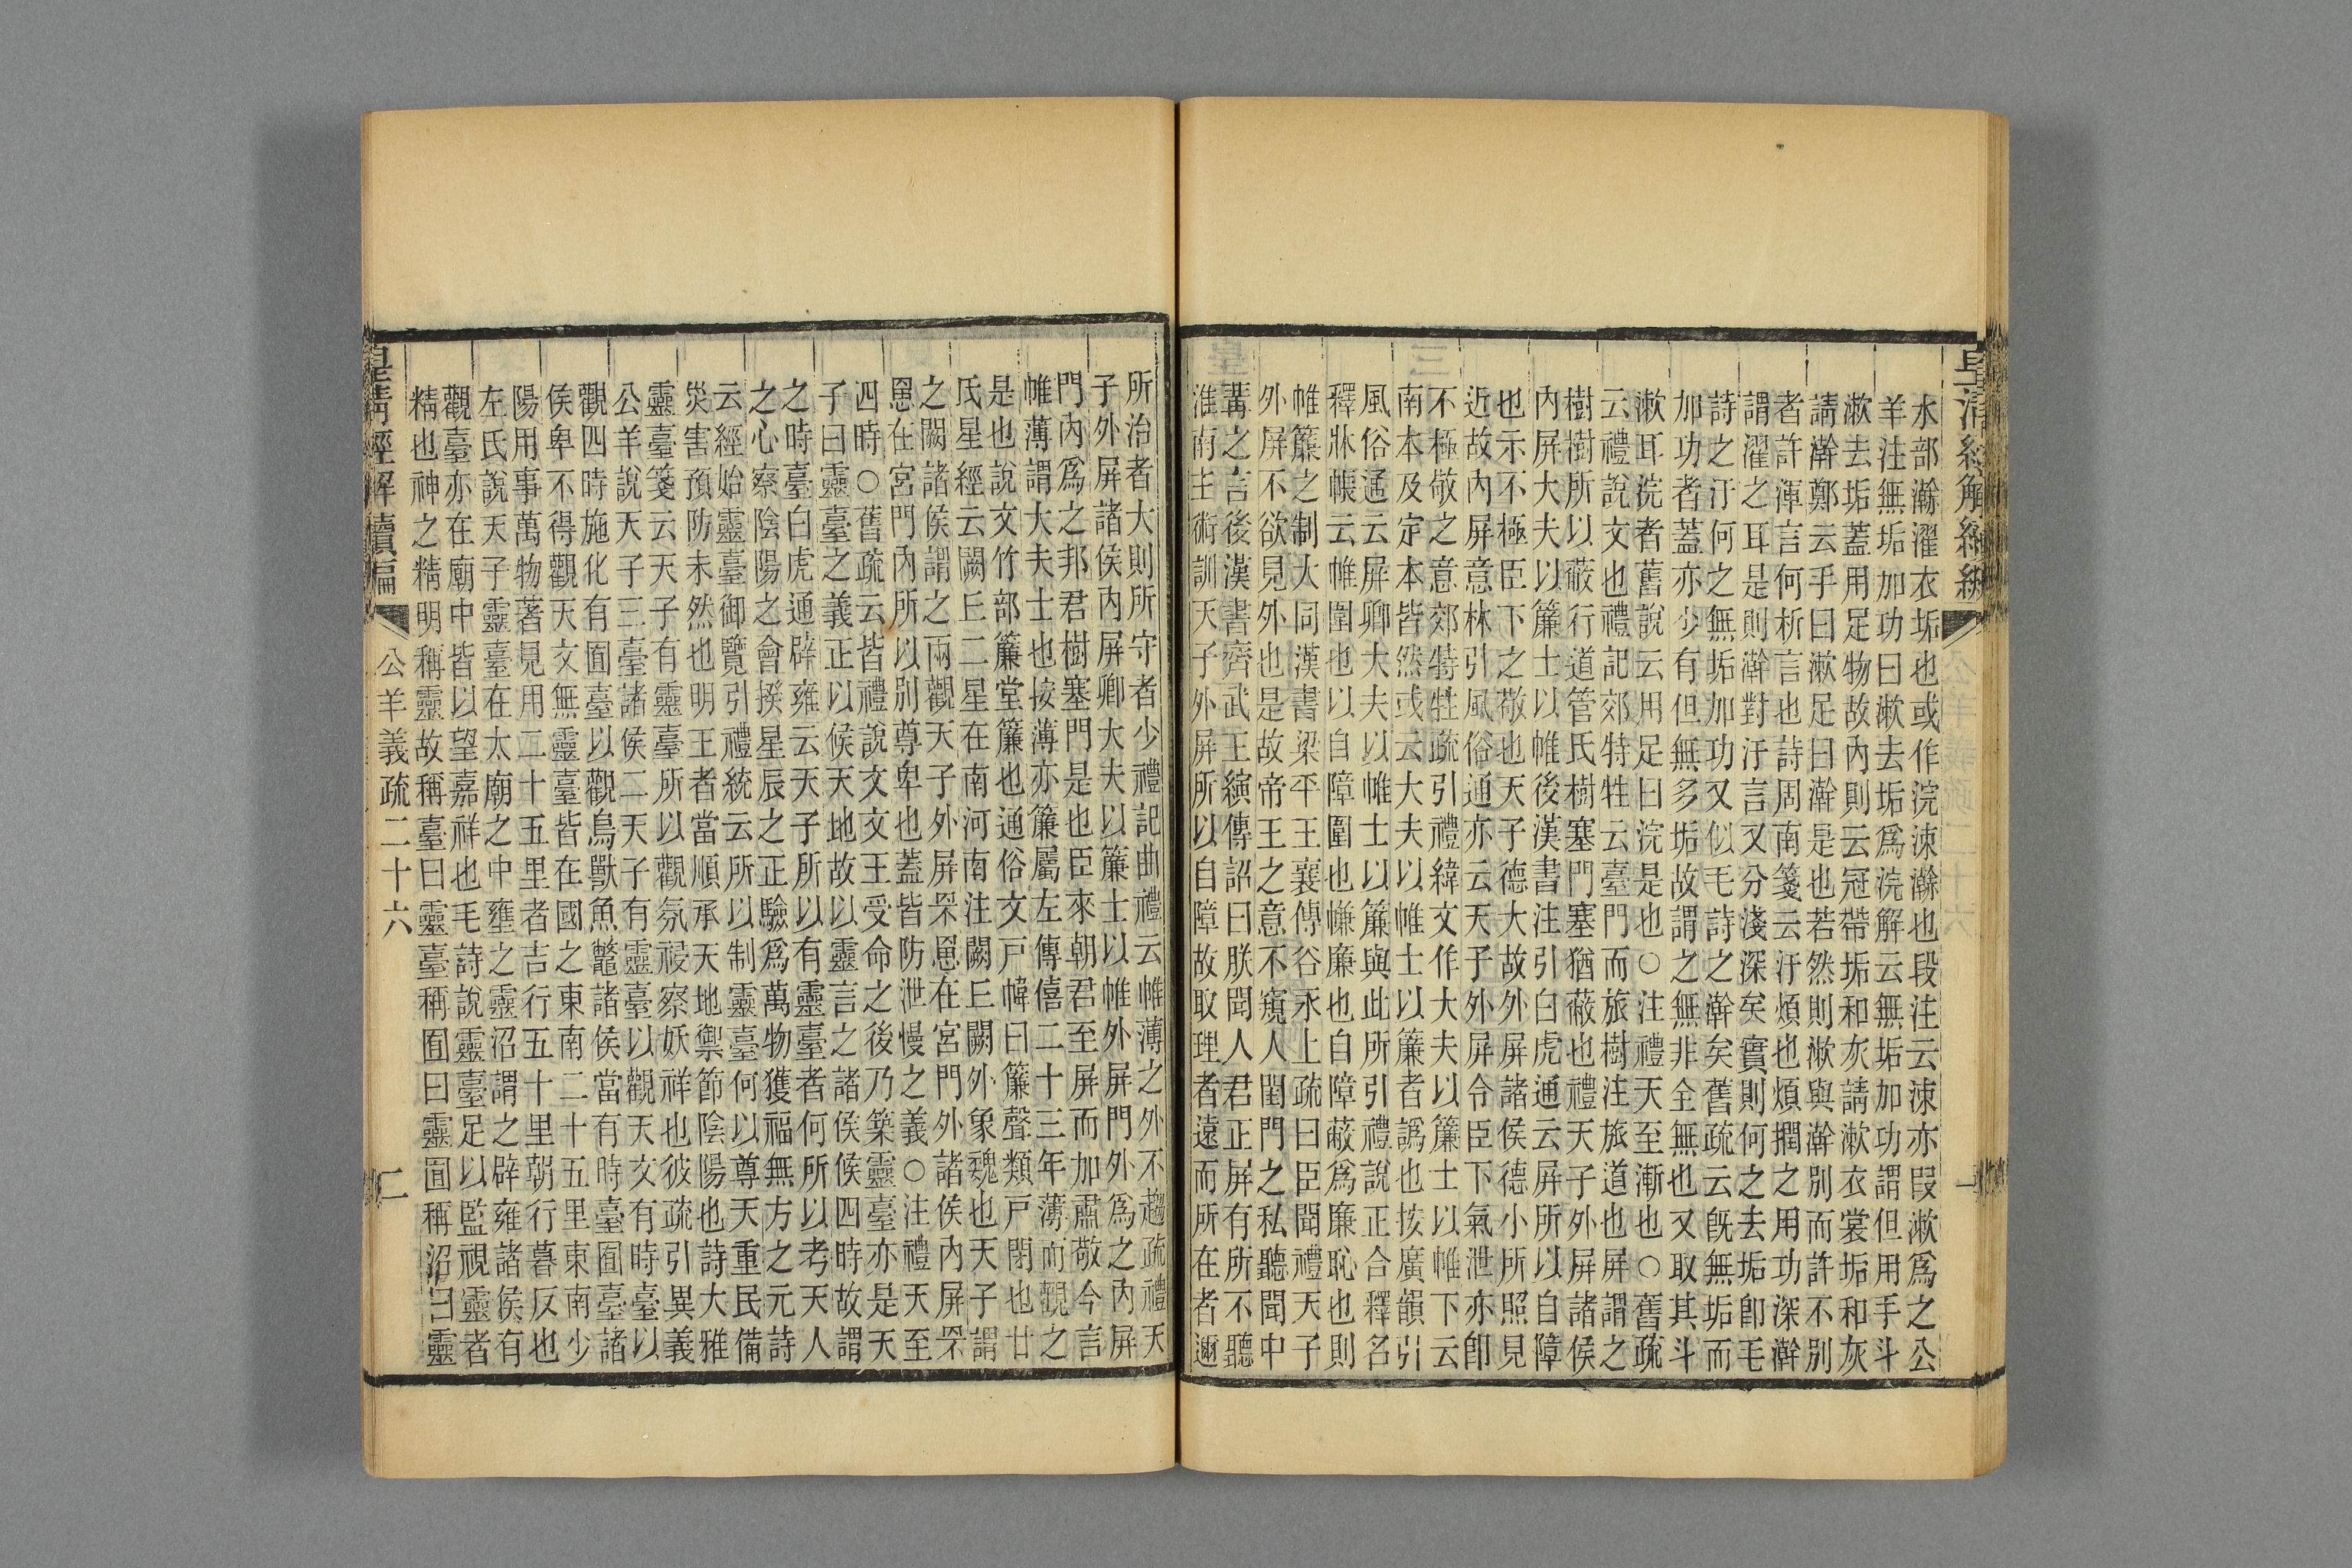 皇清經解續編
水部瀚濯衣垢也或作浣涑瀚也段注云涑亦叚漱爲之公
羊注無垢加功曰漱去垢爲浣解云無垢加功謂但用手斗
漱去垢蓋用足物故內則云冠帶垢和灰請漱衣裳垢和灰
請澣鄭云手曰漱足曰澣是也若然則漱與澣別而許不別
者許渾言何析言也詩周南箋云汙煩也煩撋之用功深澣
謂濯之耳是則澣對汙言又分淺深矣實則何之去垢卽毛
詩之汙何之無垢加功又似毛詩之澣矣舊疏云旣無垢而
加功者蓋亦少有但無多垢故謂之無非全無也又取其斗
漱耳浣者舊說云用足曰浣是也○注禮天至漸也○舊疏
云禮說文也禮記郊特牲云臺門而旅樹注旅道也屏謂之
樹樹所以蔽行道管氏樹塞門塞猶蔽也禮天子外屏諸侯
內屏大夫以簾士以帷後漢書注引白虎通云屏所以自障
也示不極臣下之敬也天子德大故外屏諸侯德小所照見
近故內屏意林引風俗通亦云天子外屏令臣下氣泄亦卽
不極敬之意郊特牲疏引禮緯文作大夫以簾士以帷下云
南本及定本皆然或云大夫以帷士以簾者譌也按廣韻引
風俗通云屏卿大夫以帷士以簾與此所引禮說正合釋名
釋牀帳云帷圍也以自障圍也㡘廉也自障蔽爲廉恥也則
帷簾之制大同漢書梁平王襄傳谷永上疏曰臣聞禮天子
外屏不欲見外也是故帝王之意不窺人閨門之私聽聞中
冓之言後漢書齊武王縯傳詔曰朕聞人君正屏有所不聽
淮南主術訓天子外屏所以自障故取理者遠而所在者邇
一
所治者大則所守者少禮記曲禮云帷薄之外不趨疏禮天
子外屏諸侯內屏卿大夫以簾士以帷外屏門外爲之內屏
門內爲之邦君樹塞門是也臣來朝君至屏而加肅敬今言
帷薄謂大夫士也按薄亦簾屬左傳僖二十三年薄而觀之
是也說文竹部簾堂簾也通俗文戶幃曰簾聲類戶閉也廿
氏星經云闕丘二星在南河南注闕丘闕外象魏也天子謂
之闕諸侯謂之兩觀天子外屏罘罳在宮門外諸侯內屏罘
罳在宮門內所以別尊卑也蓋皆防泄慢之義○注禮天至
四時○舊疏云皆禮說文文王受命之後乃築靈臺亦是天
子曰靈臺之義正以候天地故以靈言之諸侯候四時故謂
之時臺白虎通辟雍云天子所以有靈臺者何所以考天人
之心察陰陽之會揆星辰之正驗爲萬物獲福無方之元詩
云經始靈臺御覽引禮統云所以制靈臺何以尊天重民備
災害預防未然也明王者當順承天地禦節陰陽也詩大雅
靈臺箋云天子有靈臺所以觀氛祲察妖祥也彼疏引異義
公羊說天子三臺諸侯二天子有靈臺以觀天文有時臺以
觀四時施化有囿臺以觀鳥獸魚鼈諸侯當有時臺囿臺諸
侯卑不得觀天文無靈臺皆在國之東南二十五里東南少
陽用事萬物著見用二十五里者吉行五十里朝行暮反也
左氏說天子靈臺在太廟之中壅之靈沼謂之辟雍諸侯有
觀臺亦在廟中皆以望嘉祥也毛詩說靈臺足以監視靈者
精也神之精明稱靈故稱臺曰靈臺稱囿曰靈囿稱沼曰靈
皇清經解續編
公羊義疏二十六
二